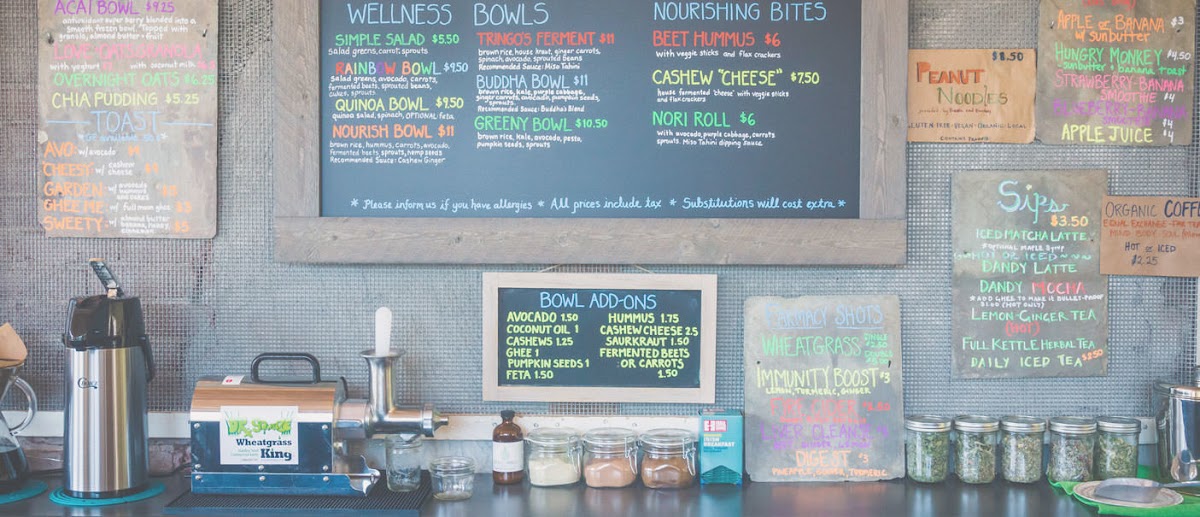 ACAI BOWL $9.25
antioxidant super berry blended into a
smooth frozen bowl. Topped with
granola, almond butter + fruit
GRANOLA
with yoghurt with coconut milk
OVERNIGHT OATS $6.25
CHIA PUDDING $5.25
TOAST
AVO: w/ avocado
"CHEESY" w/ cashew
cheese
GARDEN: w/ avocado
GHEE ME w/ full moon ghee $3
SWEETY: w/ almond butter
banana, honey
cinnamon $5
WELLNESS BOWLS
SIMPLE SALAD $5.50
Salad greens, carrot, sprouts
RAINBOW BOWL $9.50
Salad greens, avocado, carrots,
fermented beets, sprouted beans,
cukes, sprouts
QUINOA BOWL $9.50
quinoa salad, spinach, OPTIONAL feta
NOURISH BOWL $11
brown rice, hummus, carrots, avocado,
fermented beets, sprouts, hemp seeds
Recommended Sauce: Cashew Ginger
TRINGO'S FERMENT $11
brown rice, house kraut, ginger carrots,
spinach, avocado, sprouted beans
Recommended Sauce: Miso Tahini
BUDDHA BOWL $11
brown rice, kale, purple cabbage,
ginger carrots, avocado, pumpkin seeds,
sprouts.
Recommended Sauce: Buddha's Blend
GREENY BOWL $10.50
brown rice, kale, avocado, pesto,
pumpkin seeds, sprouts
NOURISHING BITES
BEET HUMMUS $6
with veggie sticks and flax crackers
CASHEW "CHEESE" $7.50
house fermented 'cheese' with veggie sticks
and flax crackers
NORI ROLL $6
with avocado, purple cabbage, carrots
sprouts. Miso Tahini dipping sauce
* Please inform us if you have allergies * All prices include tax * Substitutions will cost extra *
$8.50
PEANUT
NOODLES
GLUTEN-FREE-VEGAN-ORGANIC LOCAL
APPLE or BANANA $3
w/ sunbutter
HUNGRY MONKEY $4.50
sunbutter + banana toast
STRAWBERRY-BANANA
SMOOTHIE $4
$4
APPLE JUICE $4
Sips
$3.50
ICED MATCHA LATTE
*OPTIONAL MAPLE SYRUP
HOT OR ICED
DANDY LATTE
DANDY MOCHA
LEMON-GINGER TEA
(HOT)
FULL KETTLE HERBAL TEA
DAILY ICED TEA $2.50
ORGANIC COFFEE
HOT or ICED
$2.25
BOWL ADD-ONS
AVOCADO 1.50
COCONUT OIL 1
CASHEWS 1.25
GHEE 1
PUMPKIN SEEDS 1
FETA 1.50
HUMMUS 1.75
CASHEW CHEESE 2.5
SAURKRAUT 1.50
FERMENTED BEETS
OR CARROTS
1.50
FARMACY SHOTS
WHEATGRASS SINGLE
DOUBLE
IMMUNITY BOOST $3
LEMON, TURMERIC, GINGER
FIRE CIDER
LIVER CLEANSE
DIGEST $3
PINEAPPLE, GINGER, TURMERIC
Wheatgrass
King
IRISH
BREAKFAST